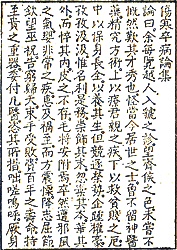 傷寒卒病論集
論曰余每覽越人入虢之診望齊侯之色未嘗不
慨然歎其才秀也怪當今居世之士曾不留神醫
藥精究方術上以療君親之疾下以救貧賤之厄
中以保身長全以養其生但競逐榮勢企踵權豪
孜孜汲汲惟名利是務崇飾其末忽棄其本華其
外而悴其內皮之不存毛將安附焉卒然遭邪風
之氣嬰非常之疾患及禍至而方震慄降志屈節
欽望巫祝告窮歸天束手受敗齎百年之壽命持
至貴之重器委付凡醫恣其所措咄嗟嗚呼厥身